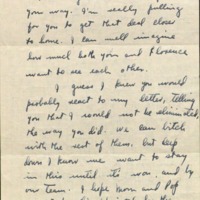 you way. I'm really pulling
for you to get that deal close
to home. I can well imagine
how much both you and Florence
want to see each other.
I guess I knew you would
probably react to my letter, telling
you that I would not be eliminated,
the way you did. We can bitch
with the rest of them. But keep
down I know we want to stay
in this until its won, and by
our team. I hope Mom and Pop